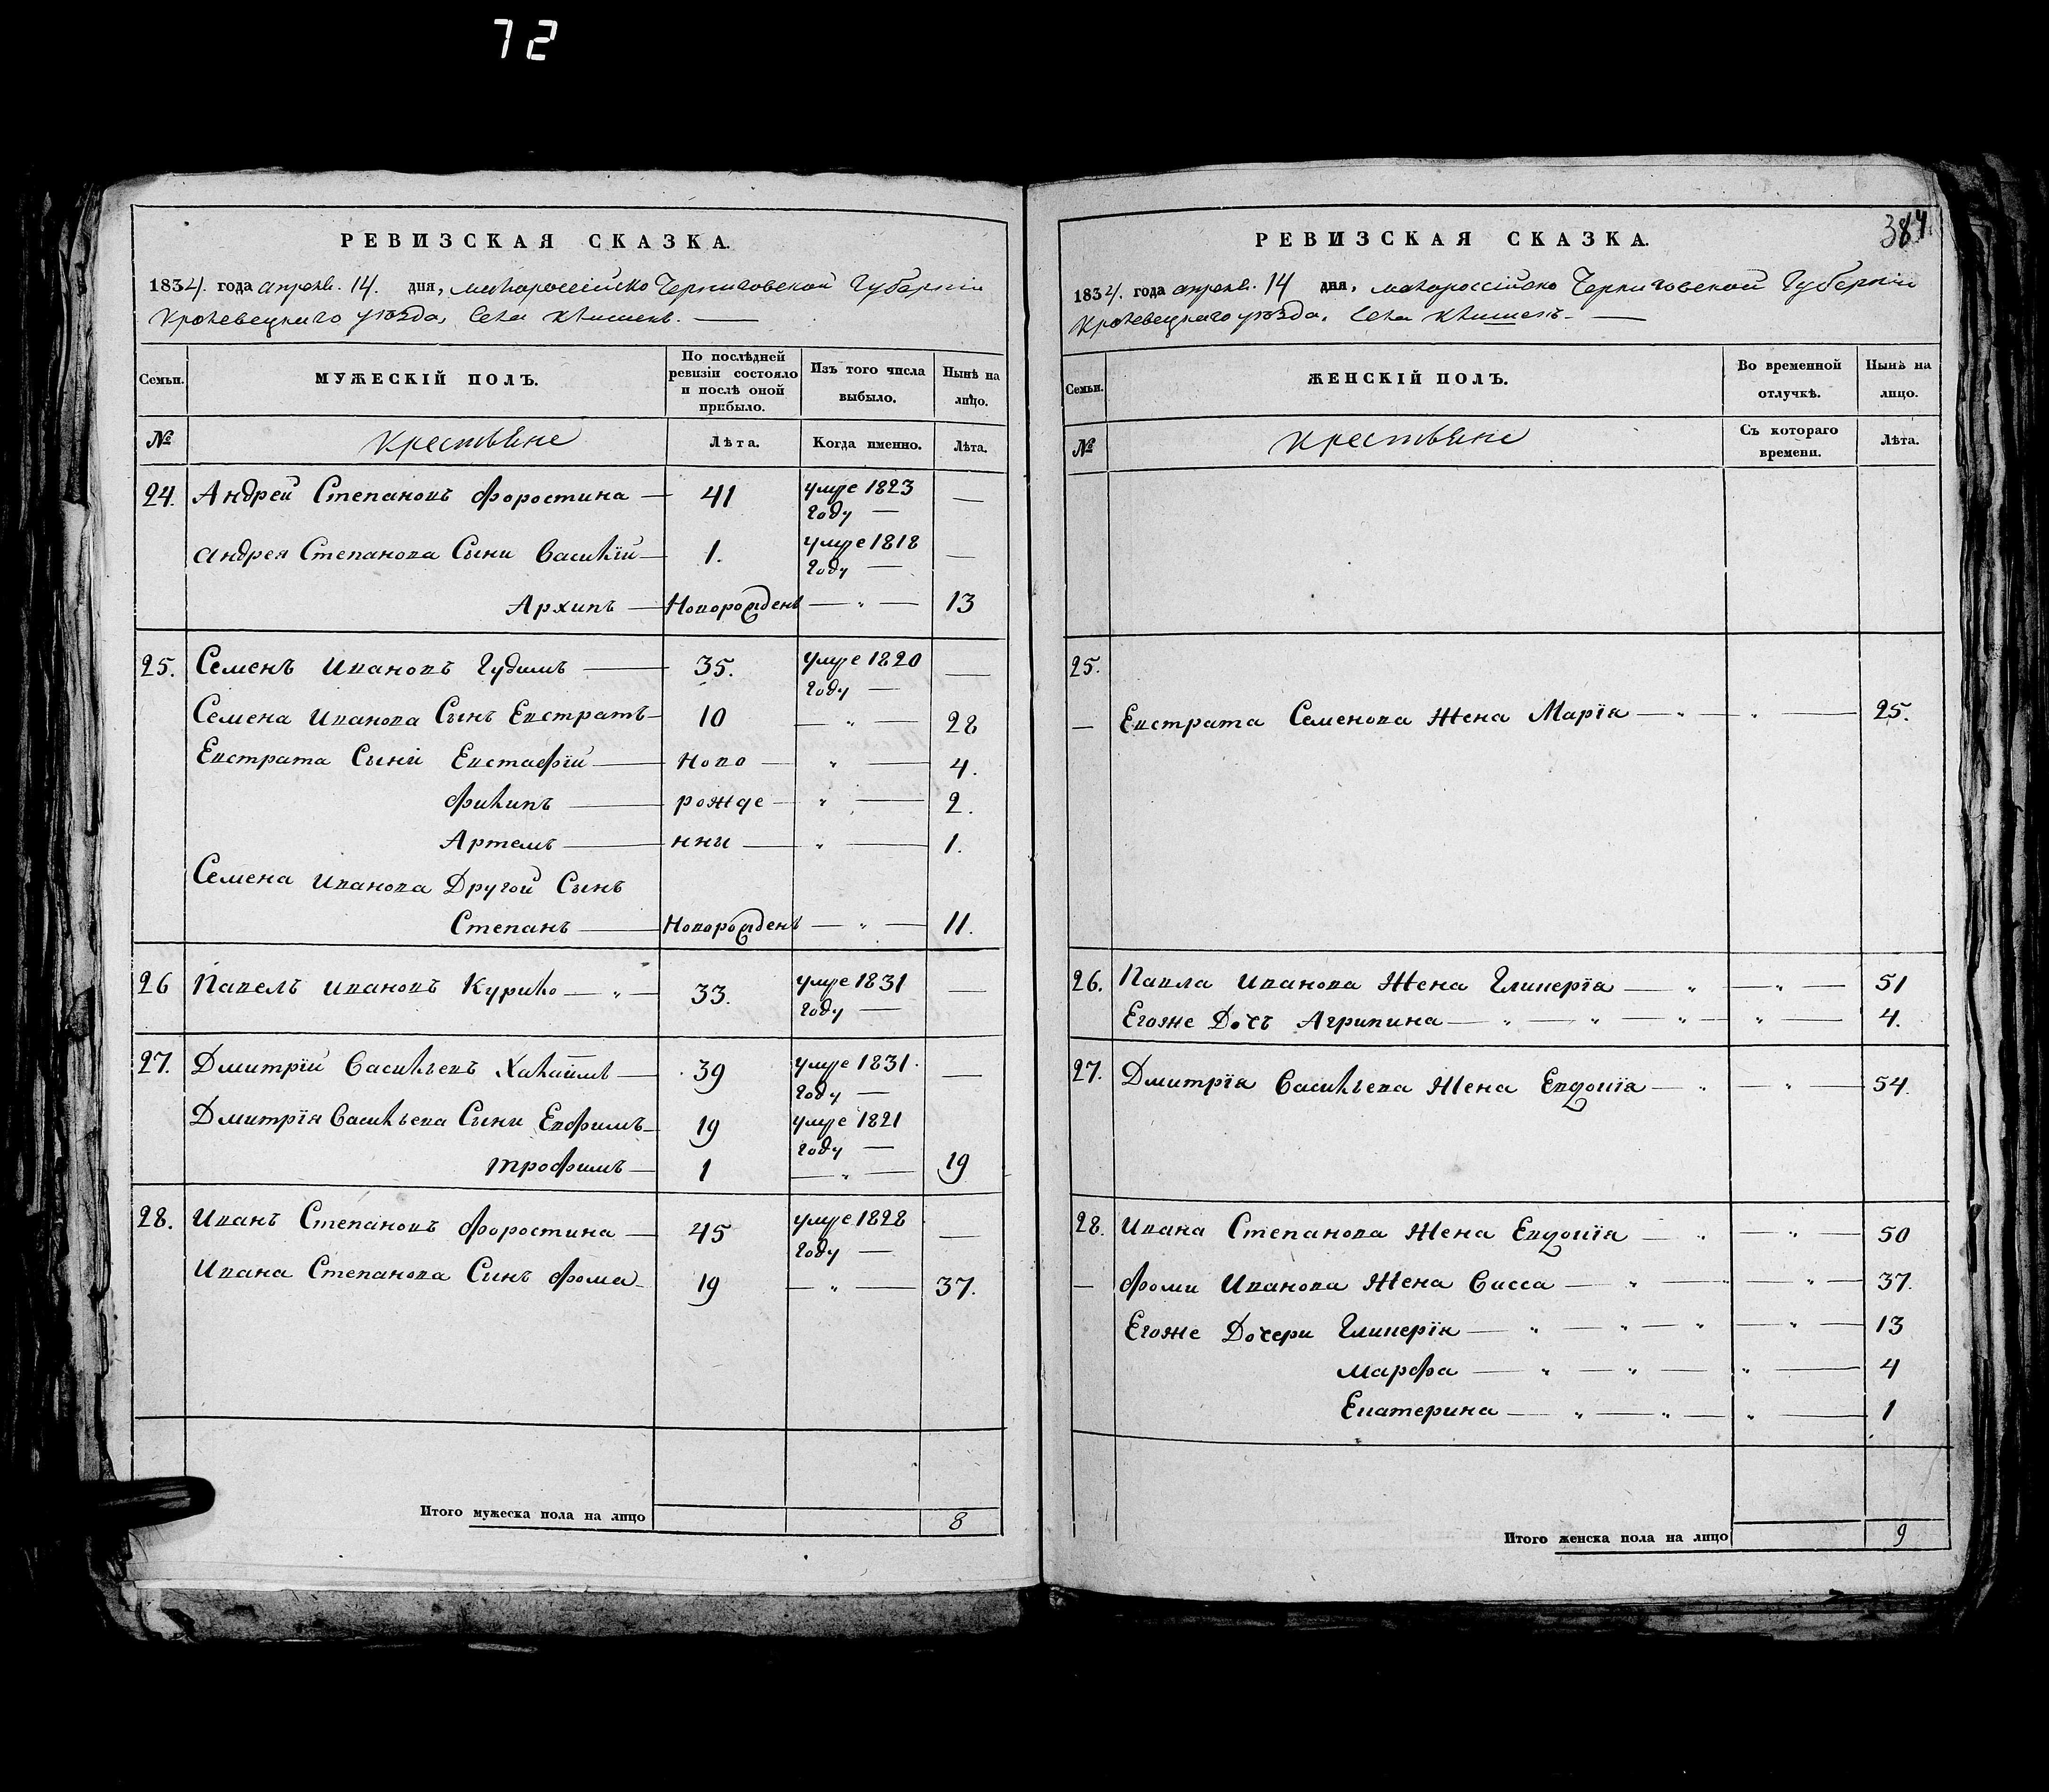 72
РЕВИЗСКАЯ СКАЗКА.
1834. года апреля. 14. дня, малороссійско Черниговской Губерніи
Кролевецкаго уѣзда, Села Клишекъ.
Семьи.
МУЖЕСКІЙ ПОЛЪ.
По послѣдней ревизіи состояло и послѣ оной прибыло.
Изъ того числа выбыло.
Нынѣ на лицо.
№
Крестьяне
Лѣта.
Когда именно.
Лѣта.
24. Андрей Степановъ Форостина — 41 умре 1823 году — —
Андрея Степанова Сыни Василій — 1. умре 1818 году — —
Архипъ — Новорожденъ — " — 13
25. Семенъ Ивановъ Гудимъ — 35. умре 1820 году — —
Семена Иванова Сынъ Евстратъ — 10 — " — 28
Евстрата Сыни Евстафій — Ново — " — 4.
Филипъ — рожде — " — 2.
Артемъ — нни — " — 1.
Семена Иванова Другой Сынъ
Степанъ — Новорожденъ — " — 11.
26 Павелъ Ивановъ Курило — " — 33. умре 1831 году — —
27. Дмитрій Васильевъ Халаимъ — 39 умре 1831. году — —
Дмитрія Васильева Сыни Евфимъ — 19 умре 1821 году —
Трофимъ — 1 — " — 19
28. Иванъ Степановъ Форостина — 45 умре 1828 году — —
Ивана Степанова Синъ Фома — 19 — " — 37.
Итого мужеска пола на лицо 8
384
РЕВИЗСКАЯ СКАЗКА.
1834. года апреля. 14 дня, малороссійско Черниговской Губерніи
Кролевецкаго уѣзда, Села Клишекъ. —
Семьи.
ЖЕНСКІЙ ПОЛЪ.
Во временной отлучкѣ.
Нынѣ на лицо.
№
Крестьяне
Съ котораго времени.
Лѣта.
25.
— Евстрата Семенова Жена Марія — " — " — 25.
26. Павла Иванова Жена Гликерія — " — " — 51
Егоже Дочъ Агрипина — " — " — " — " — 4.
27. Дмитрія Васильева Жена Евдокія — " — " — 54.
28. Ивана Степанова Жена Евдокія — " — " — 50
— Фоми Иванова Жена Васса — " — " — " — 37.
Егоже Дочери Гликерія — " — " — " — " — 13
Марфа — " — " — " — 4
Екатерина — " — " — " — 1
Итого женска пола на лицо 9